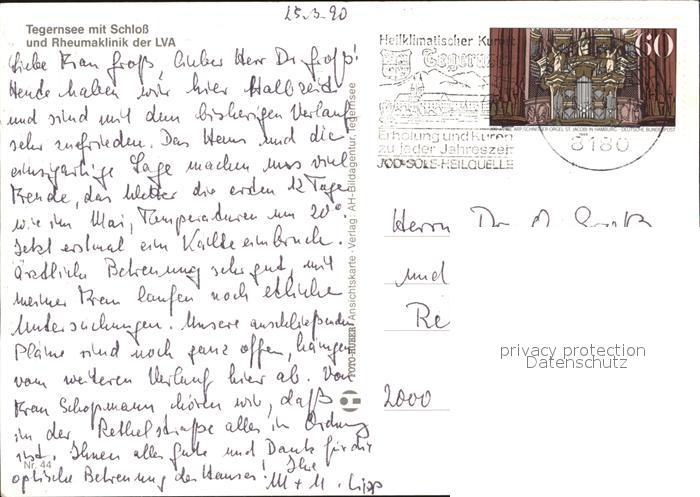 25.3.90
Tegernsee mit Schloß
und Rheumaklinik der LVA
Liebe Frau Groß, lieber Herr Dr. Groß!
Heute haben wir hier Halbzeit
und sind mit dem bisherigen Verlauf
sehr zufrieden. Das Haus und die
einzigartige Lage machen uns viel
Freude, das Wetter die ersten 12 Tage
wie im Mai, Temperaturen um 20°.
Jetzt erstmal ein Kälteeinbruch.
Ärztliche Betreuung sehr gut, mit
meiner Frau laufen noch etliche
Untersuchungen. Unsere anschließenden
Pläne sind noch ganz offen, hängen
vom weiteren Verlauf hier ab. Von
Frau Schopmann hören wir, daß
in der Rethelstraße alles in Ordnung
ist. Ihnen alles Gute und Dank für die
optische Betreuung des Hauses! Ihre
M + M.
Nr. 44
FOTO-HUBER · Ansichtskarte · Verlag · AH-Bildagentur Tegernsee
Heilklimatischer Kurort
Tegernsee
Erholung und Kuren
zu jeder Jahreszeit
JOD-SOLE-HEILQUELLE
60
ARP SCHNITGER-ORGEL ST. JACOBI IN HAMBURG · DEUTSCHE BUNDESPOST
8180
Herrn Dr.
und
Re
2000
privacy protection
Datenschutz